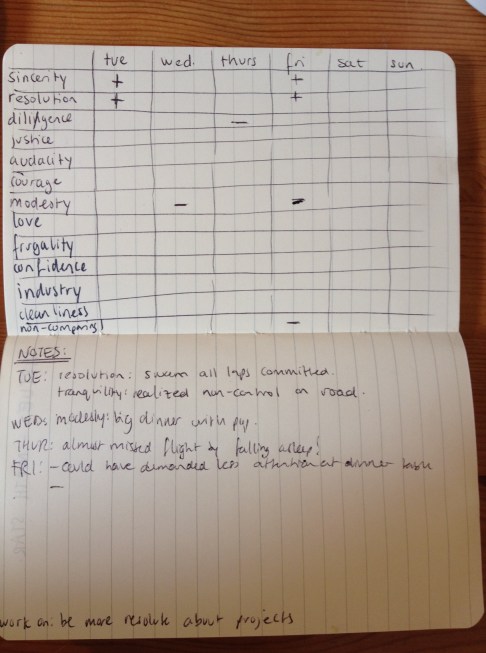 tue wed. thurs fri sat sun.
sincerity + +
resolution + +
diligence —
justice
audacity
courage
modesty — —
love
frugality
confidence
industry
cleanliness
non-comparing —
NOTES:
TUE: resolution: swam all laps committed.
tranquility: realized non-control on road.
WED: modesty: big dinner with
THUR: almost missed flight by falling asleep!
FRI: – could have demanded less attention at dinner table
–
work on: be more resolute about projects